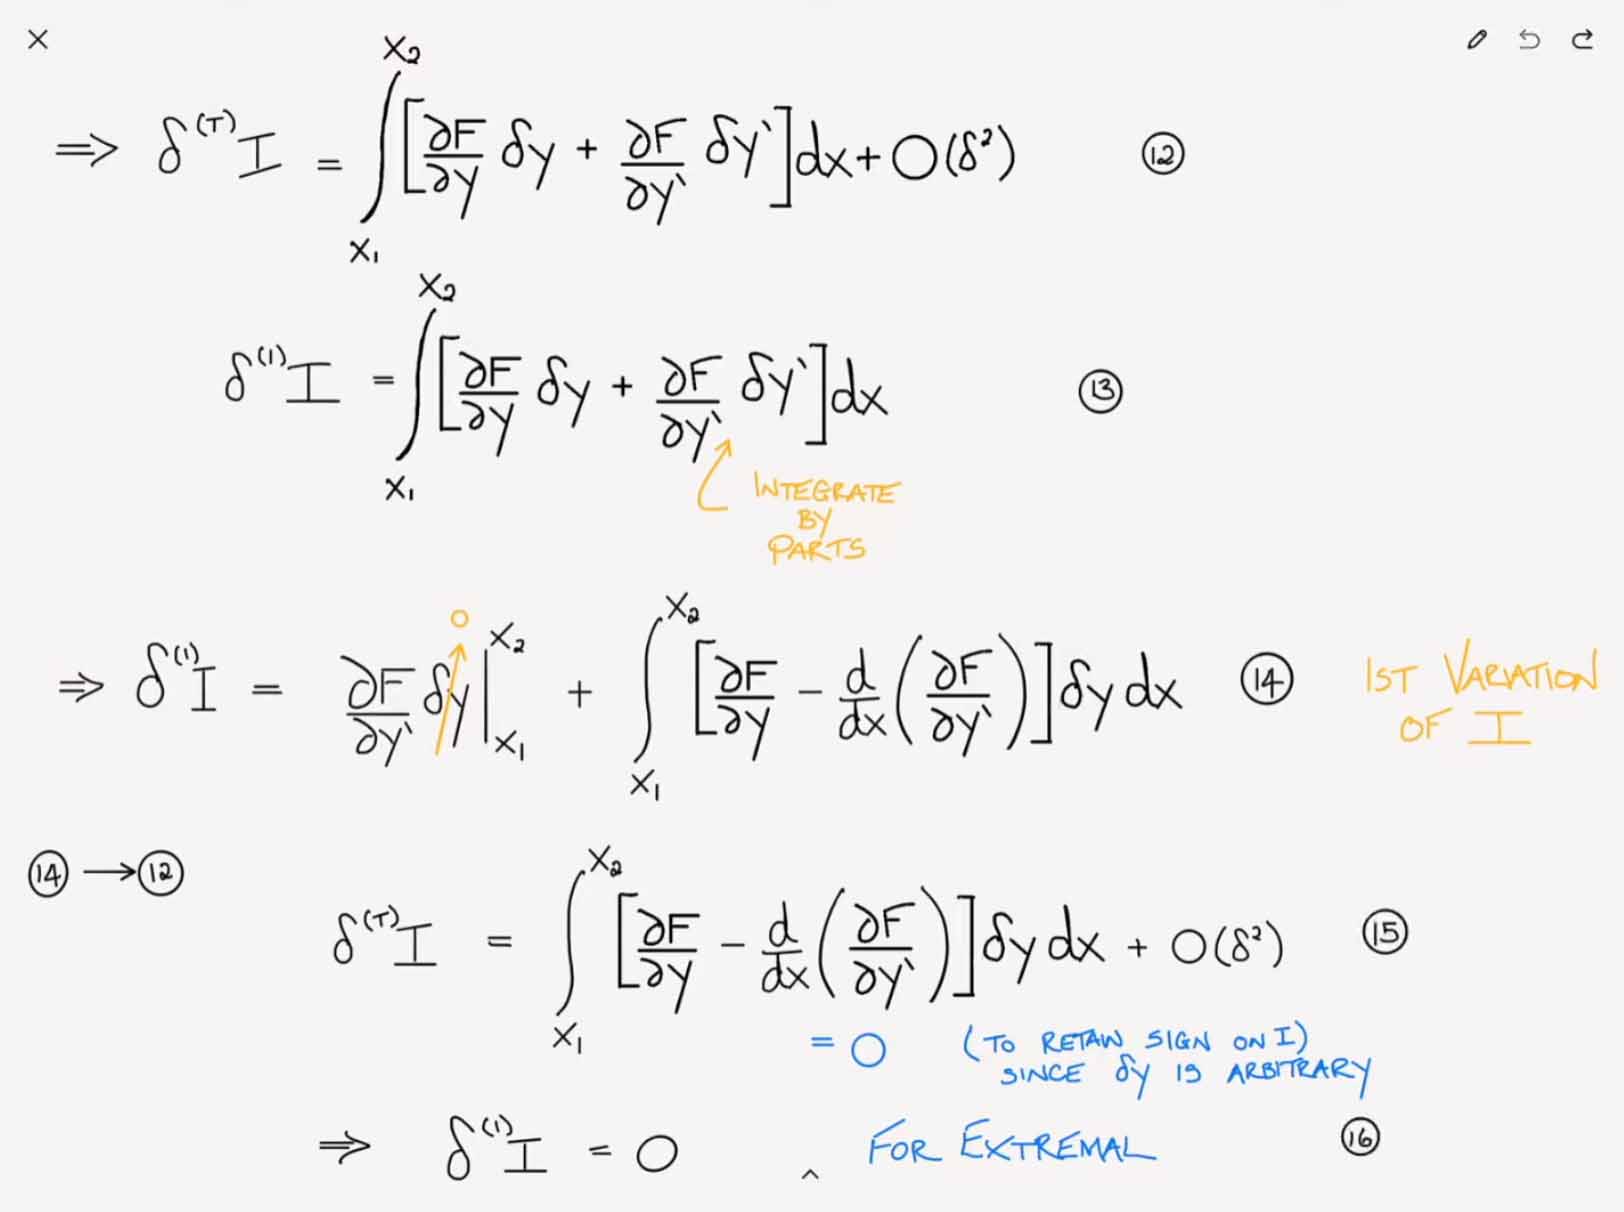 ⇒ δ⁽ᵀ⁾I = ∫_{x₁}^{x₂} [∂F/∂y δy + ∂F/∂y` δy`] dx + O(δ²) ⑫
δ⁽¹⁾I = ∫_{x₁}^{x₂} [∂F/∂y δy + ∂F/∂y` δy`] dx ⑬
INTEGRATE
BY
PARTS
⇒ δ⁽¹⁾I = ∂F/∂y` δy |_{x₁}^{x₂} → 0 + ∫_{x₁}^{x₂} [∂F/∂y − d/dx (∂F/∂y`)] δy dx ⑭ 1ST VARIATION
OF I
⑭ → ⑫
δ⁽ᵀ⁾I = ∫_{x₁}^{x₂} [∂F/∂y − d/dx (∂F/∂y`)] δy dx + O(δ²) ⑮
= 0 (TO RETAIN SIGN ON I)
SINCE δy IS ARBITRARY
⇒ δ⁽¹⁾I = 0 FOR EXTREMAL ⑯